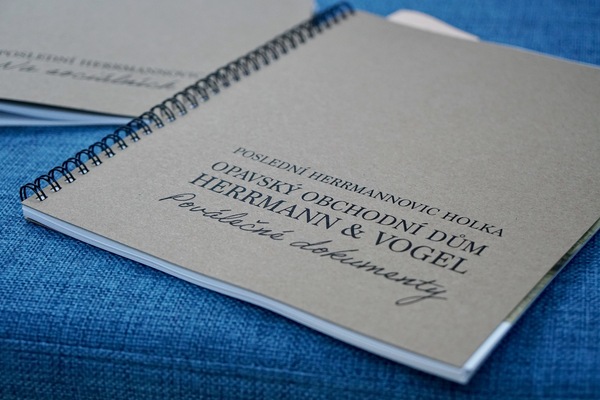 POSLEDNÍ HERRMANNOVIC HOLKA
OPAVSKÝ OBCHODNÍ DŮM
HERRMANN & VOGEL
Poválečné dokumenty
POSLEDNÍ HERRMANNOVIC
Na sociálních